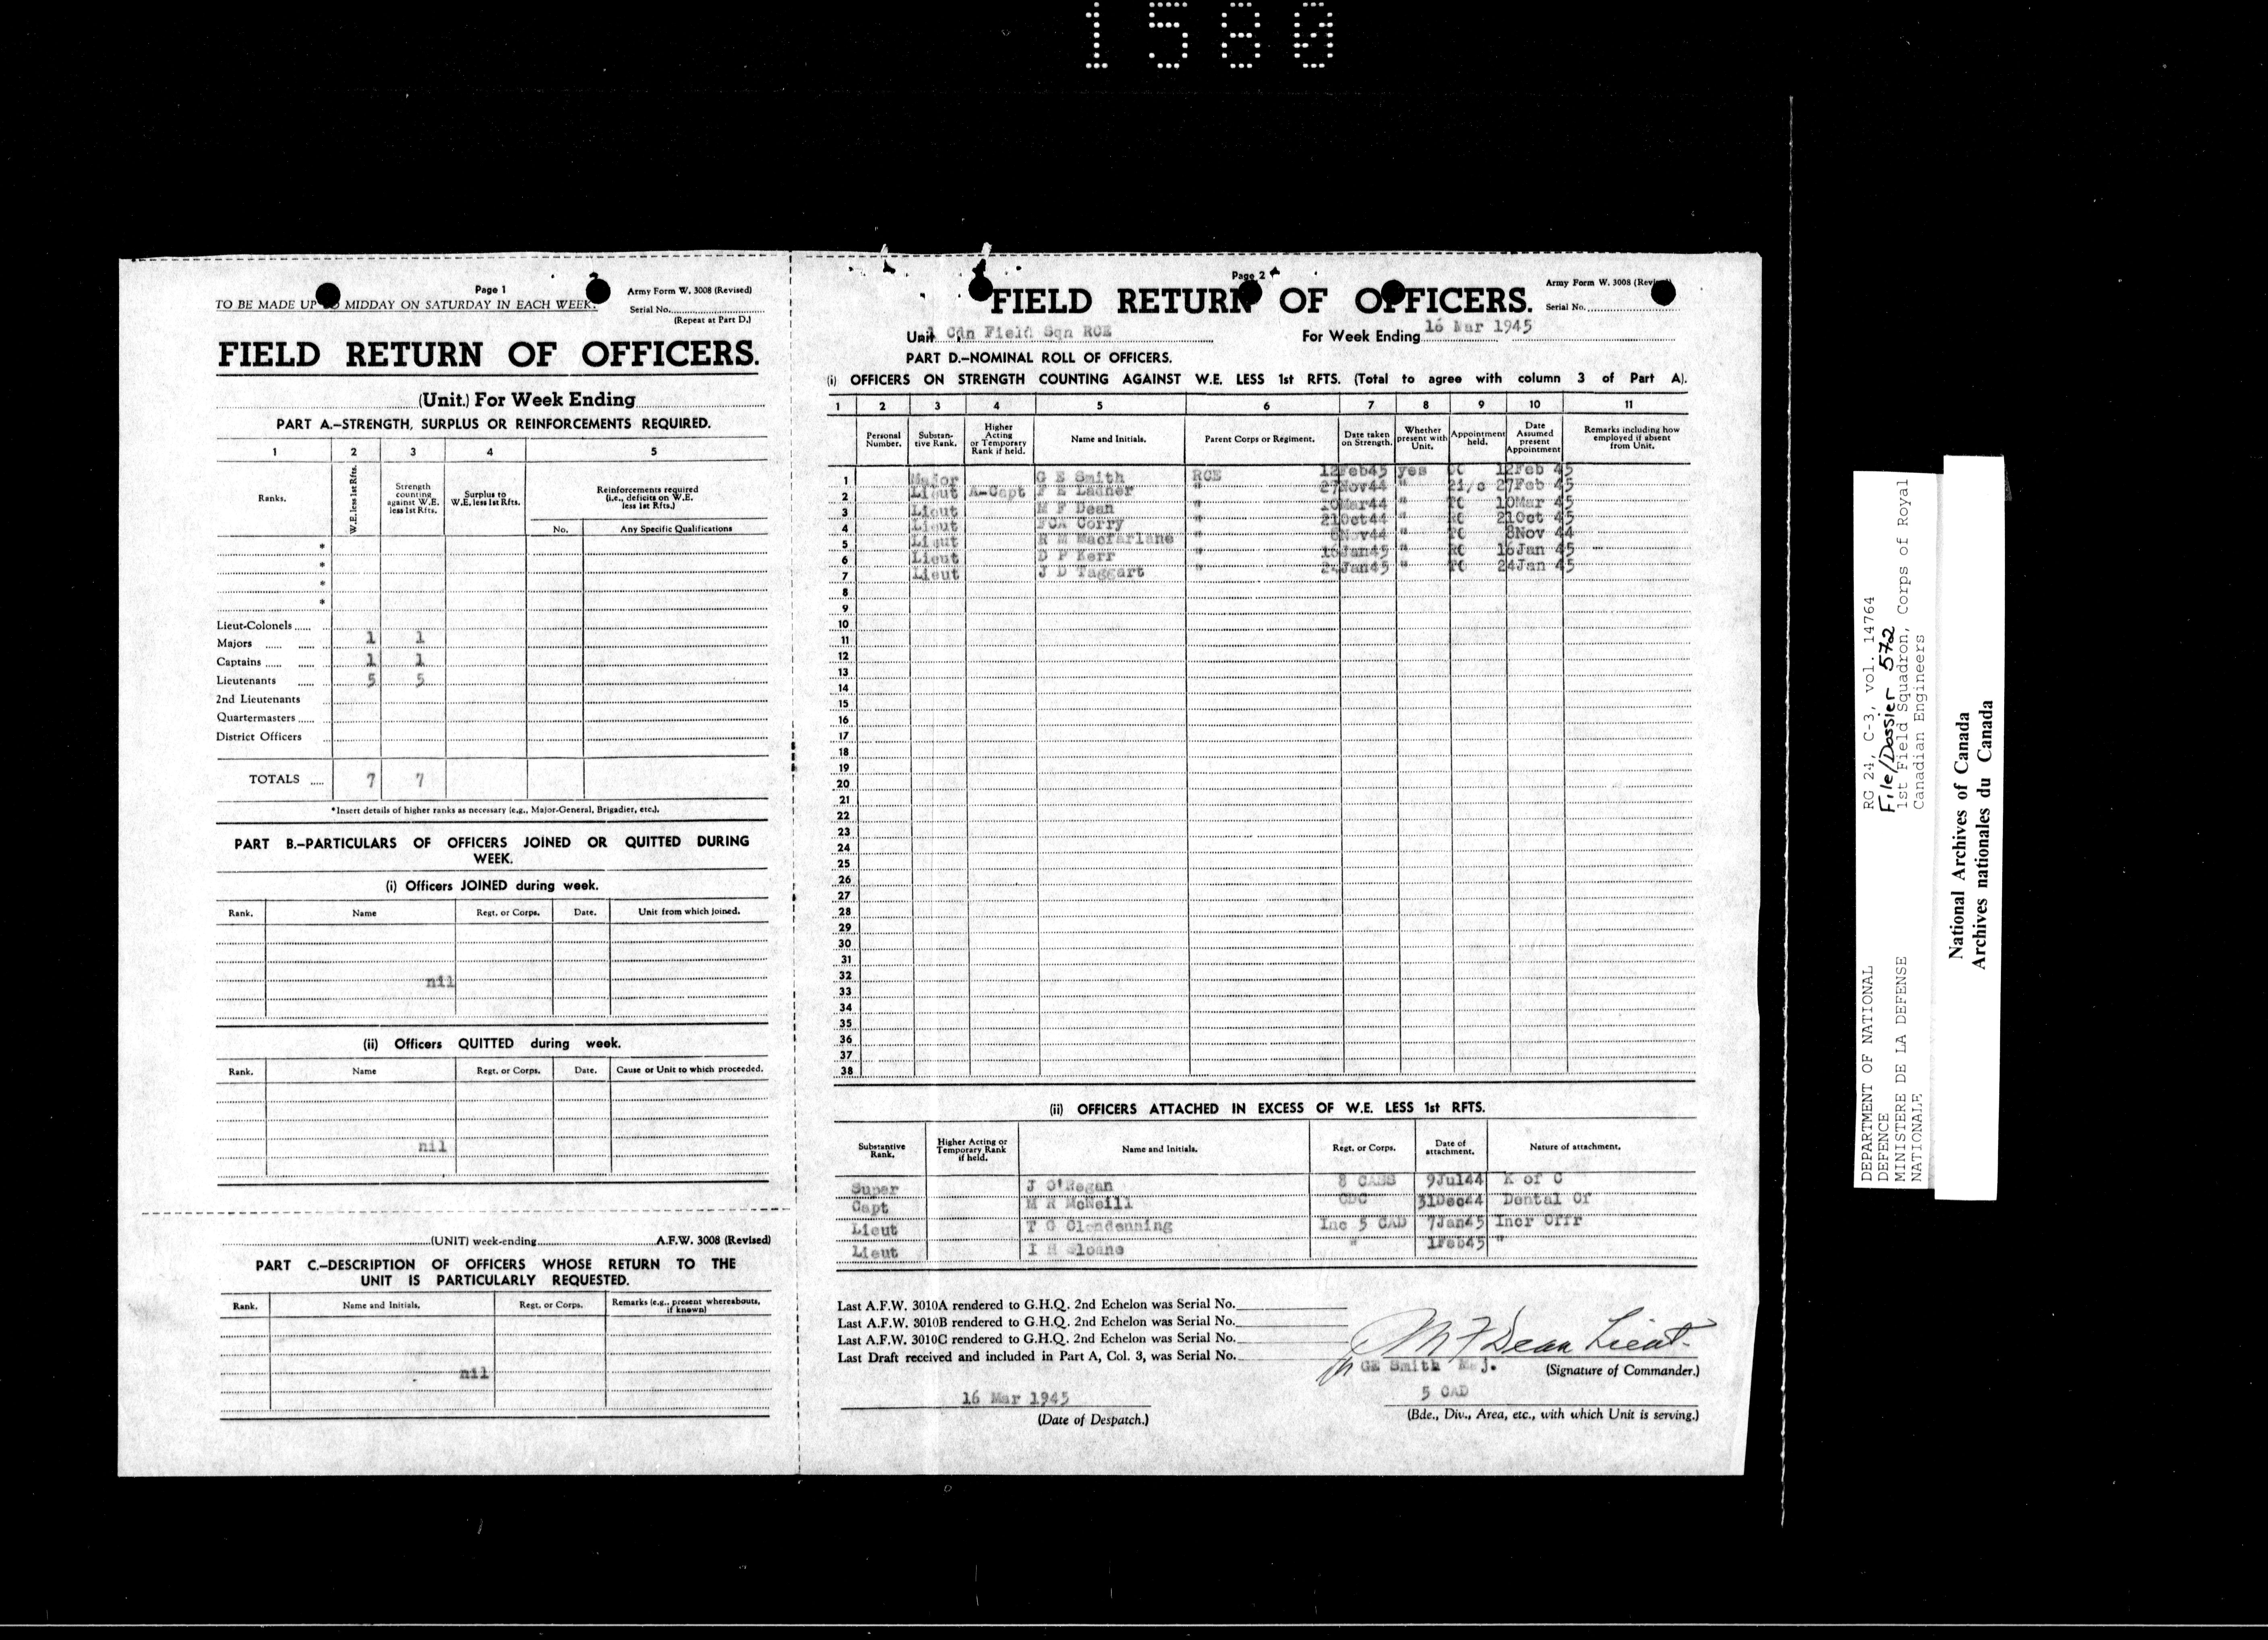 1580
Page 1
TO BE MADE UP TO MIDDAY ON SATURDAY IN EACH WEEK.
Army Form W. 3008 (Revised)
Serial No.
(Repeat at Part D.)
FIELD RETURN OF OFFICERS.
(Unit.) For Week Ending
PART A.-STRENGTH, SURPLUS OR REINFORCEMENTS REQUIRED.
1 2 3 4 5
Ranks.
W.E. less 1st Rfts.
Strength counting against W.E. less 1st Rfts.
Surplus to W.E. less 1st Rfts.
Reinforcements required (i.e., deficits on W.E. less 1st Rfts.)
No. Any Specific Qualifications
*
*
*
*
Lieut-Colonels
Majors 1 1
Captains 1 1
Lieutenants 5 5
2nd Lieutenants
Quartermasters
District Officers
TOTALS 7 7
*Insert details of higher ranks as necessary (e.g., Major-General, Brigadier, etc.).
PART B.-PARTICULARS OF OFFICERS JOINED OR QUITTED DURING
WEEK.
(i) Officers JOINED during week.
Rank. Name Regt. or Corps. Date. Unit from which joined.
nil
(ii) Officers QUITTED during week.
Rank. Name Regt. or Corps. Date. Cause or Unit to which proceeded.
nil
(UNIT) week-ending A.F.W. 3008 (Revised)
PART C.-DESCRIPTION OF OFFICERS WHOSE RETURN TO THE
UNIT IS PARTICULARLY REQUESTED.
Rank. Name and Initials. Regt. or Corps. Remarks (e.g., present whereabouts, if known)
nil
Page 2
FIELD RETURN OF OFFICERS.
Army Form W. 3008 (Revised)
Serial No.
Unit 1 Cdn Field Sqn RCE For Week Ending 16 Mar 1945
PART D.-NOMINAL ROLL OF OFFICERS.
(i) OFFICERS ON STRENGTH COUNTING AGAINST W.E. LESS 1st RFTS. (Total to agree with column 3 of Part A).
1 2 3 4 5 6 7 8 9 10 11
Personal Number.
Substantive Rank.
Higher Acting or Temporary Rank if held.
Name and Initials.
Parent Corps or Regiment.
Date taken on Strength.
Whether present with Unit.
Appointment held.
Date Assumed present Appointment
Remarks including how employed if absent from Unit.
1 Major G E Smith RCE 12Feb45 yes OC 12Feb 45
2 Lieut A-Capt F E Ladner " 27Nov44 " 2i/c 27Feb 45
3 Lieut M F Dean " 10Mar44 " 10Mar 45
4 Lieut FCA Corry " 21Oct44 " 21Oct 45
5 Lieut R M Macfarlane " Nov44 " 8Nov 44
6 Lieut D P Kerr " 16Jan45 " 16Jan 45
7 Lieut J D Taggart " 24Jan45 " 24Jan 45
8
9
10
11
12
13
14
15
16
17
18
19
20
21
22
23
24
25
26
27
28
29
30
31
32
33
34
35
36
37
38
(ii) OFFICERS ATTACHED IN EXCESS OF W.E. LESS 1st RFTS.
Substantive Rank. Higher Acting or Temporary Rank if held. Name and Initials. Regt. or Corps. Date of attachment. Nature of attachment.
Super J O'Regan 8 9Jul44 K of C
Capt M R McNeill CDC 31Dec44 Dental Of
Lieut T G Clendenning Inc 5 CAD 7Jan45 Incr Offr
Lieut I H Sloane " 1Feb45 "
Last A.F.W. 3010A rendered to G.H.Q. 2nd Echelon was Serial No.
Last A.F.W. 3010B rendered to G.H.Q. 2nd Echelon was Serial No.
Last A.F.W. 3010C rendered to G.H.Q. 2nd Echelon was Serial No.
Last Draft received and included in Part A, Col. 3, was Serial No.
M F Dean Lieut.
GE Smith Maj.
(Signature of Commander.)
16 Mar 1945
(Date of Despatch.)
5 CAD
(Bde., Div., Area, etc., with which Unit is serving.)
DEPARTMENT OF NATIONAL
DEFENCE
MINISTERE DE LA DEFENSE
NATIONALE
RG 24, C-3, vol. 14764
File/Dossier 572
1st Field Squadron, Corps of Royal
Canadian Engineers
National Archives of Canada
Archives nationales du Canada